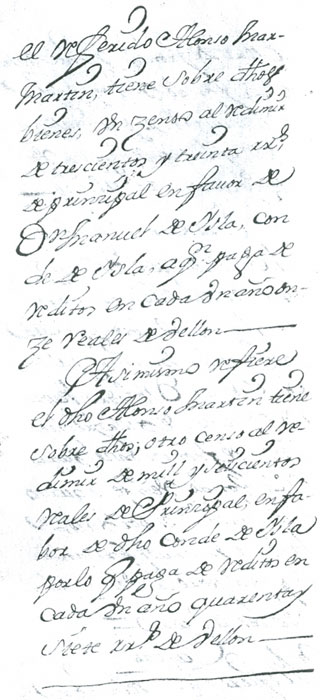 el referido Alonso Mar-
Martin, tiene sobre dhos
bienes, Un zenso al redimir
de trescientos y treinta rrs
de prinzipal en favor de
Dn Manuel de Isla, con
de de Isla, a qn paga de
reditos en cada Un año on-
ze reales de Vellon
Asimismo refiere
el dho Alonso Martin tiene
sobre dhos, otro censo al re-
dimir de mill y seiscientos
reales de Prinzipal, en fa-
bor de dho conde de Isla
porlo q paga de reditos en
cada Un año quarenta y
siete rrs de Vellon